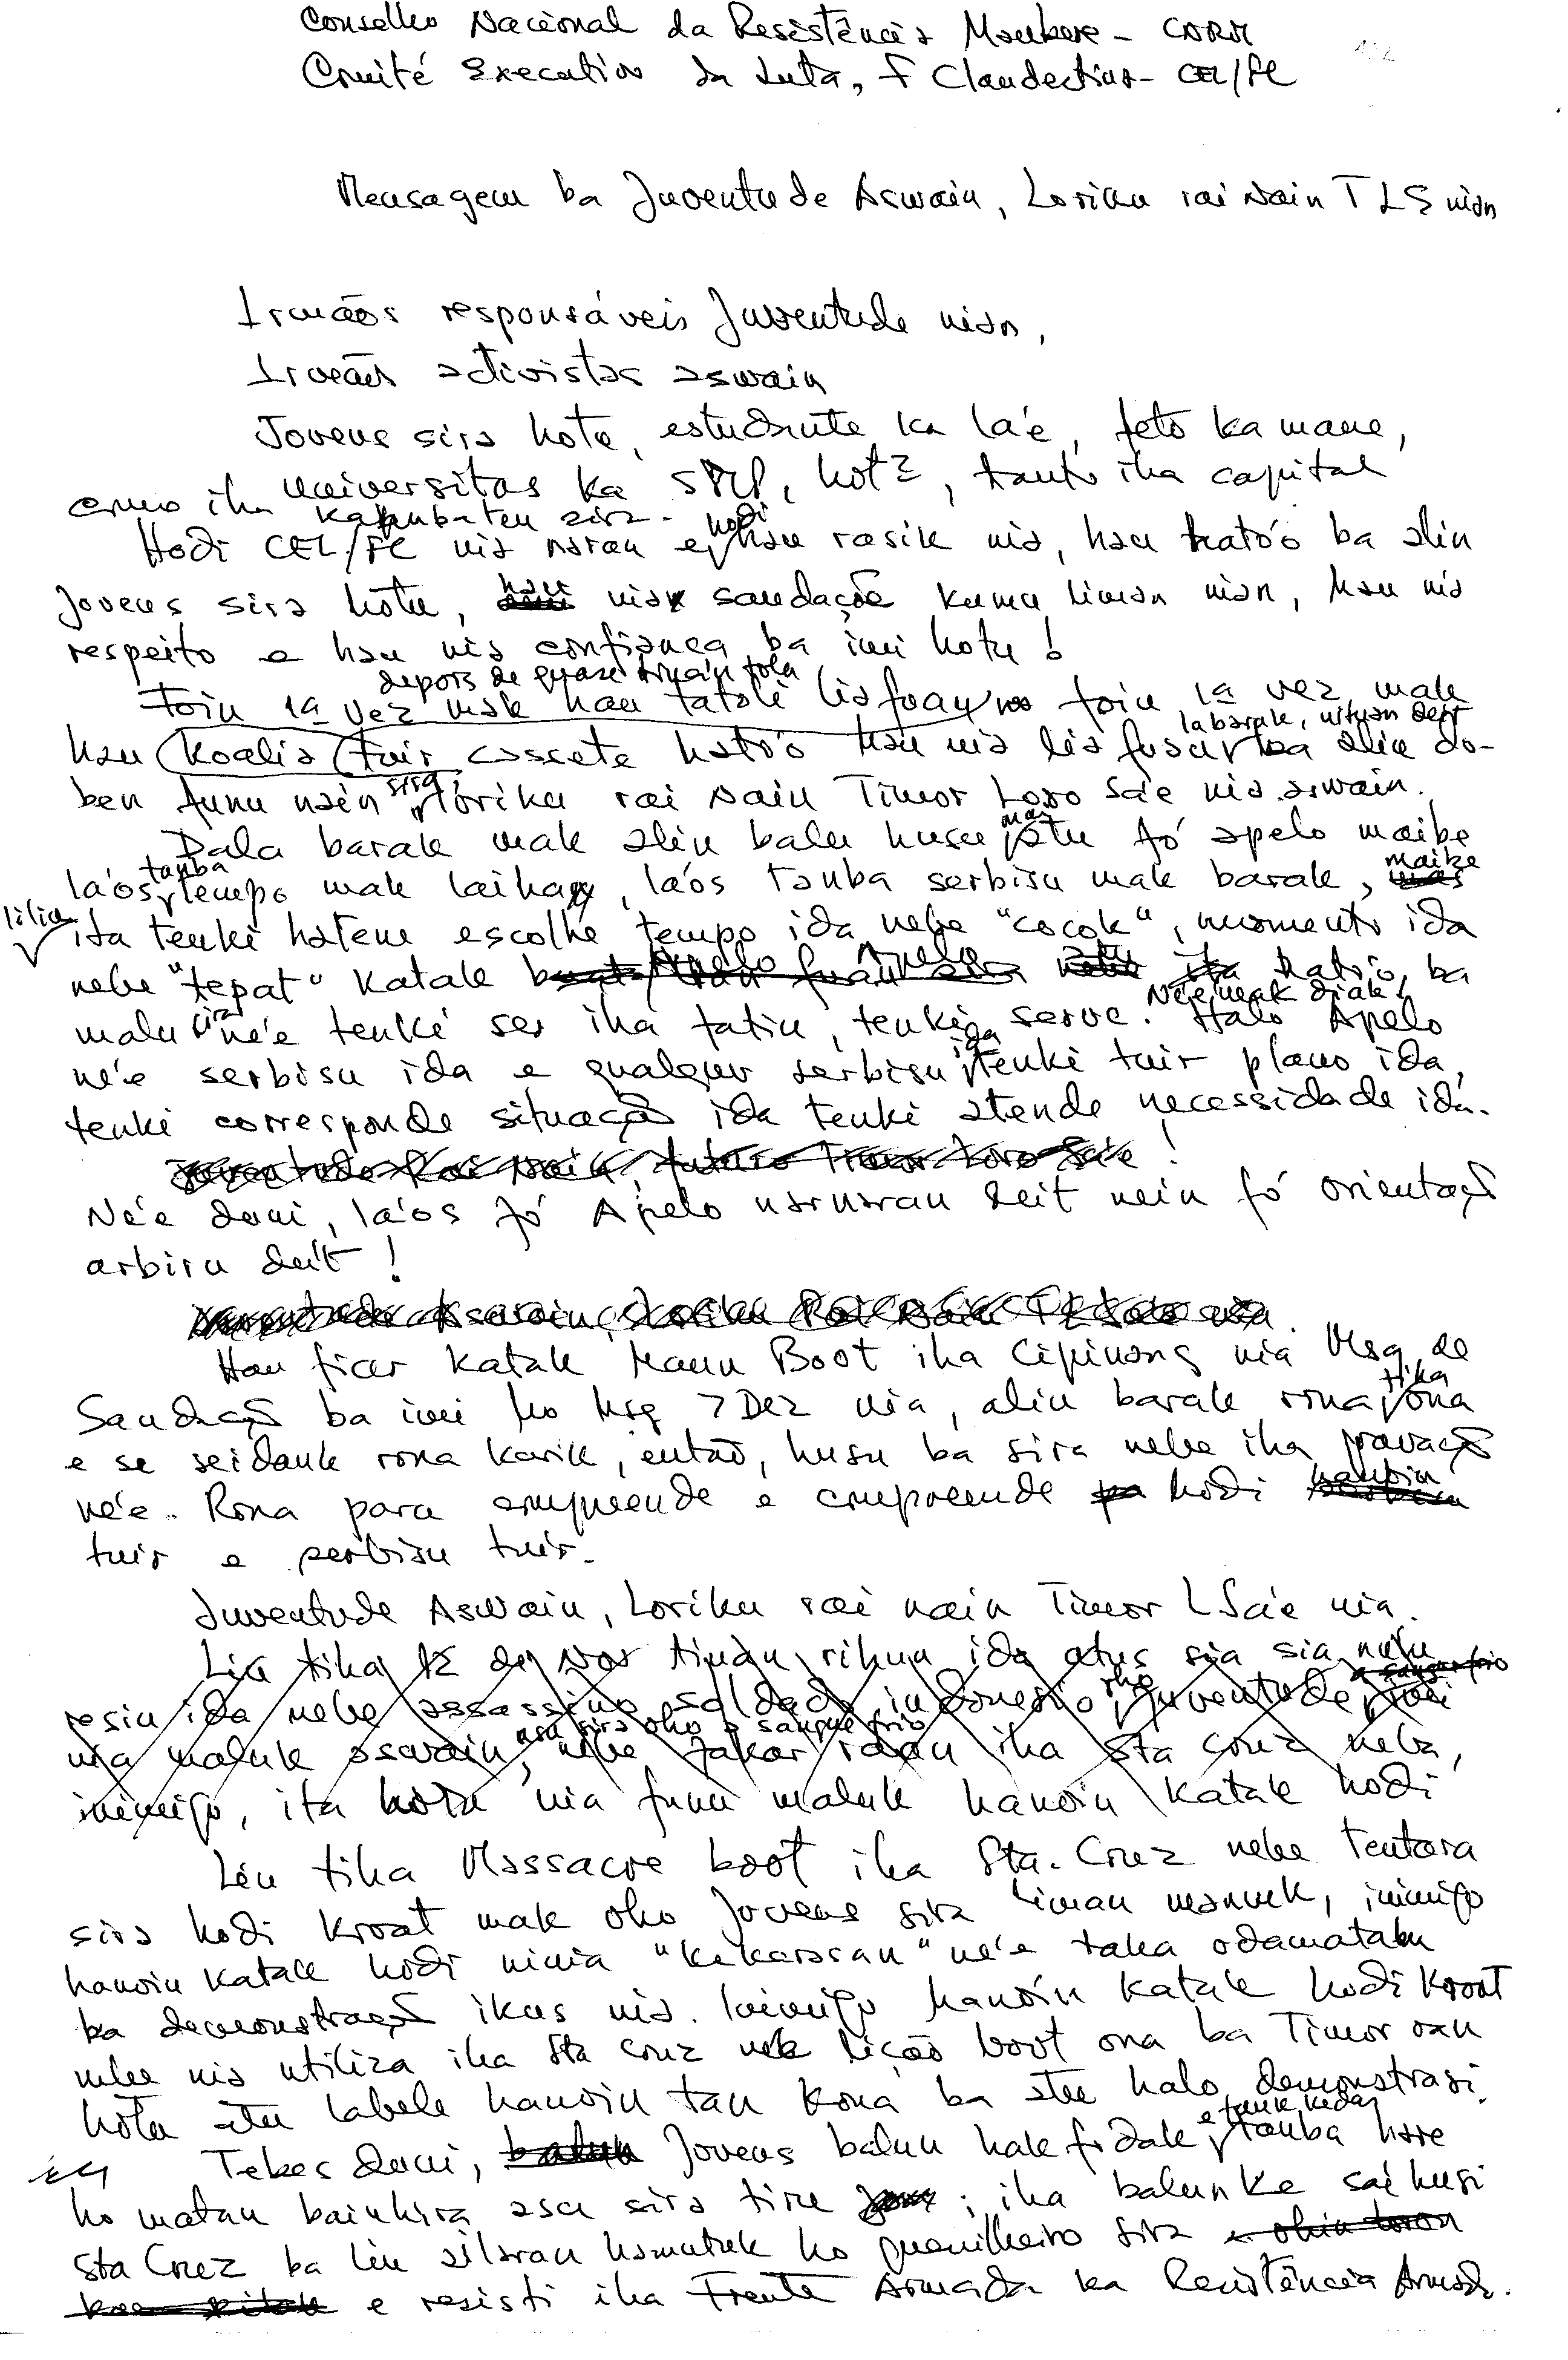 Conselho Nacional da Resistência Maubere - CNRM
Comité Executivo da Luta, F Clandestina - CEL/FC
Mensagem ba Juventude Aswain, Loriku rai Nain TLS nian
Irmãos responsáveis Juventude nian,
Irmãos activistas aswain
Jovens sira hotu, estudante ka la'e, feto ka mane,
universitas ka SMP, hotu, tanto iha capital
como iha kabubaten sira.
Hodi CEL/FC nia naran e, hodi hau rasik nia, hau hato'o ba alin
jovens sira hotu, hau nia saudação kumu liman nian, hau nia
respeito e hau nia confiança ba imi hotu!
depois de quase tinan tolu
Foin 1ª vez mak hau tatoli liafuan, no foin 1ª vez mak
labarak, nituan deit
hau koalia tuir cassete hato'o hau nia lia fuan ba alin do-
ben funu nain sira, loriku rai Nain Timor Loro Sa'e nia aswain.
Dala barak mak alin balu husu mai atu fó apelo maibe
la'os tanba tempo mak laiha, la'os tanba serbisu mak barak, maibe
ita tenki hatene escolhe tempo ida nebe "cocok", momento ida
nebe "tepat" katak Apelo nebe ita hato'o ba
malu sira ne'e tenki ser iha fatin, tenki serve. Ne'e mak diak! Halo Apelo
ne'e serbisu ida e qualquer serbisu ida tenki tuir plano ida,
tenki corresponde situação ida tenki atende necessidade ida.
Ne'e duni, la'os fó Apelo narnaran deit nein fó orientação
arbiru deit!
Hau fiar katak Maun Boot iha Cipinang nia Msg de
Saudação ba imi ho Msg 7 Dez nia, alin barak rona tiha ona
e se seidauk rona karik, então, husu ba sira nebe iha gravação
ne'e. Rona para compreende e compreende hodi hanoin
tuir e serbisu tuir.
Juventude Aswain, Loriku rai nain Timor LSa'e nia.
Liu tiha 12 de Nov tinan rihun ida atus sia sia nulu
resin ida nebe assassino soldado indonesio oho juventude
nia maluk aswain, asu sira oho a sangue frio nebe fakar raan iha Sta Cruz neba,
inimigo, ita hotu nia funu maluk hanoin katak hodi
Liu tiha Massacre boot iha Sta. Cruz nebe Tentara
sira hodi kroat mak oho Jovens sira liman mamuk, inimigo
hanoin katak hodi ninia "kekerasan" ne'e taka odamatan
ba demonstração ikus nia. Inimigo hanoin katak hodi kroat
nebe nia utiliza iha Sta Cruz nebe lição boot ona ba Timor oan
hotu atu labele hanoin tan kona ba atu halo demonstrasi.
Tebes duni, Jovens balun hakfidak e tauk kedas, tanba hare
ho matan bainhira asu sira tiru; iha balun ke sai husi
Sta Cruz ba liu ailaran hamutuk ho guerrilheiro sira
e resisti iha Frente Armada ka Resistência Armada.